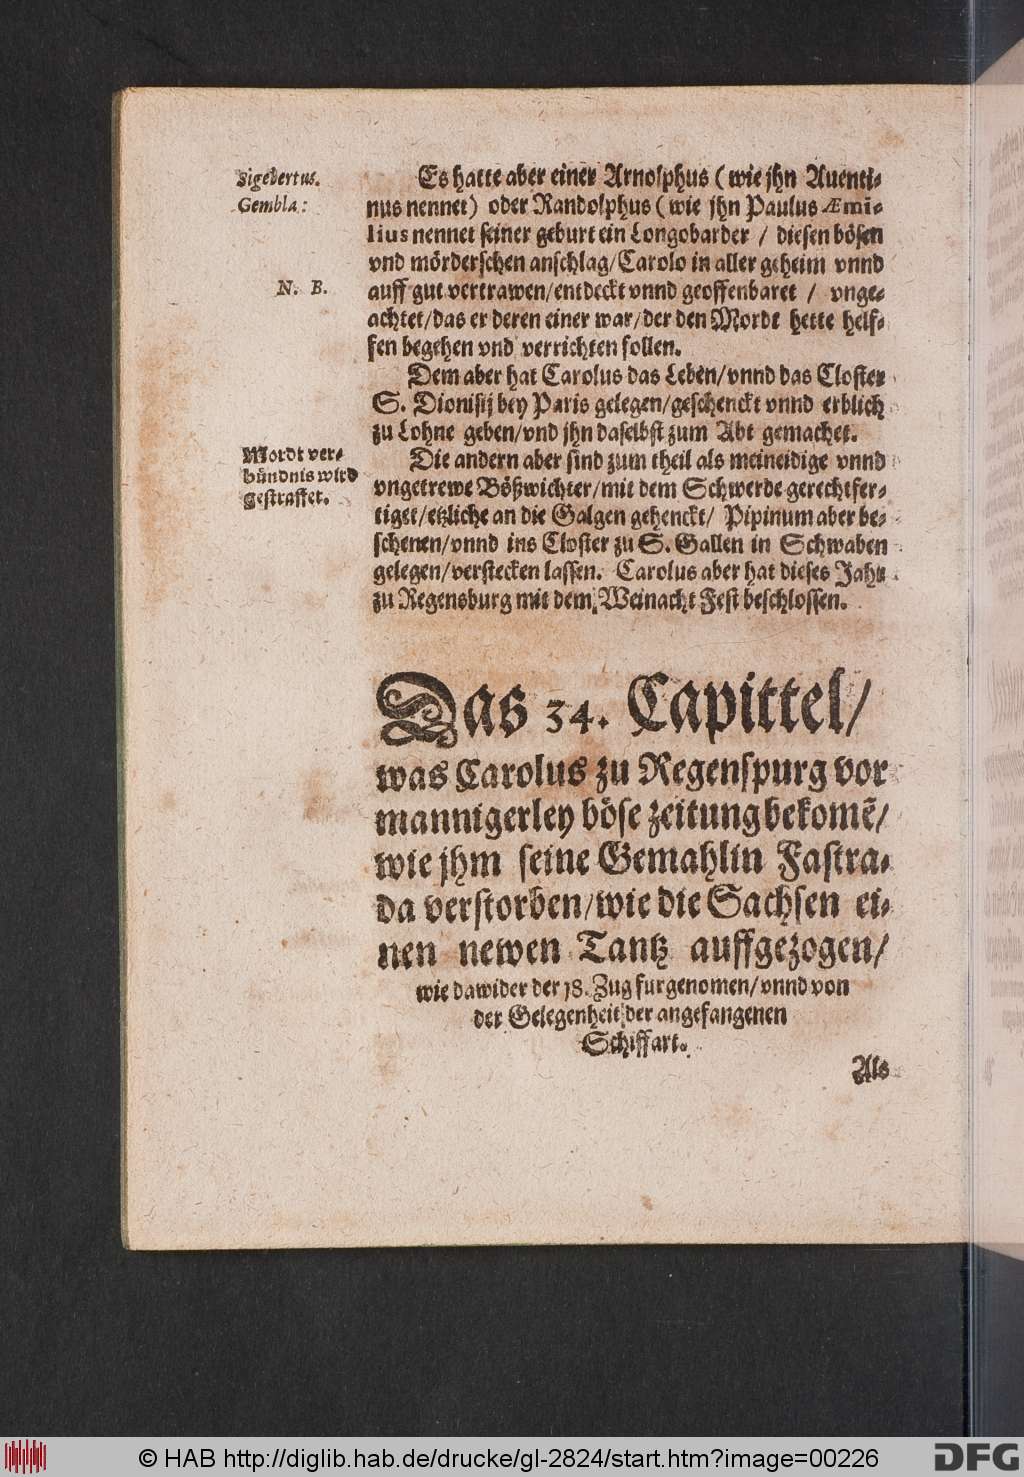 Sigebertus.
Gembla:
N. B.
Es hatte aber einer Arnolphus (wie jhn Auenti-
nus nennet) oder Randolphus (wie jhn Paulus Æmi-
lius nennet seiner geburt ein Longobarder / diesen bösen
vnd mörderschen anschlag/Carolo in aller geheim vnnd
auff gut vertrawen/entdeckt vnnd geoffenbaret / vnge-
achtet/das er deren einer war/der den Mordt hette helf-
fen begehen vnd verrichten sollen.
Dem aber hat Carolus das Leben/vnnd das Closter
S. Dionisij bey Paris gelegen/geschenckt vnnd erblich
zu Lohne geben/vnd jhn daselbst zum Abt gemachet.
Mordt ver-
bündnis wird
gestraffet.
Die andern aber sind zum theil als meineidige vnnd
vngetrewe Bößwichter/mit dem Schwerde gerechtfer-
tiget/etzliche an die Galgen gehenckt/ Pipinum aber be-
schenen/vnnd ins Closter zu S. Gallen in Schwaben
gelegen/verstecken lassen. Carolus aber hat dieses Jahr
zu Regensburg mit dem Weinacht Fest beschlossen.
Das 34. Capittel/
was Carolus zu Regenspurg vor
mannigerley böse zeitung bekomẽ/
wie jhm seine Gemahlin Fastra-
da verstorben/wie die Sachsen ei-
nen newen Tantz auffgezogen/
wie dawider der 18. Zug furgenomen/vnnd von
der Gelegenheit der angefangenen
Schiffart.
Als
© HAB http://diglib.hab.de/drucke/gl-2824/start.htm?image=00226
DFG